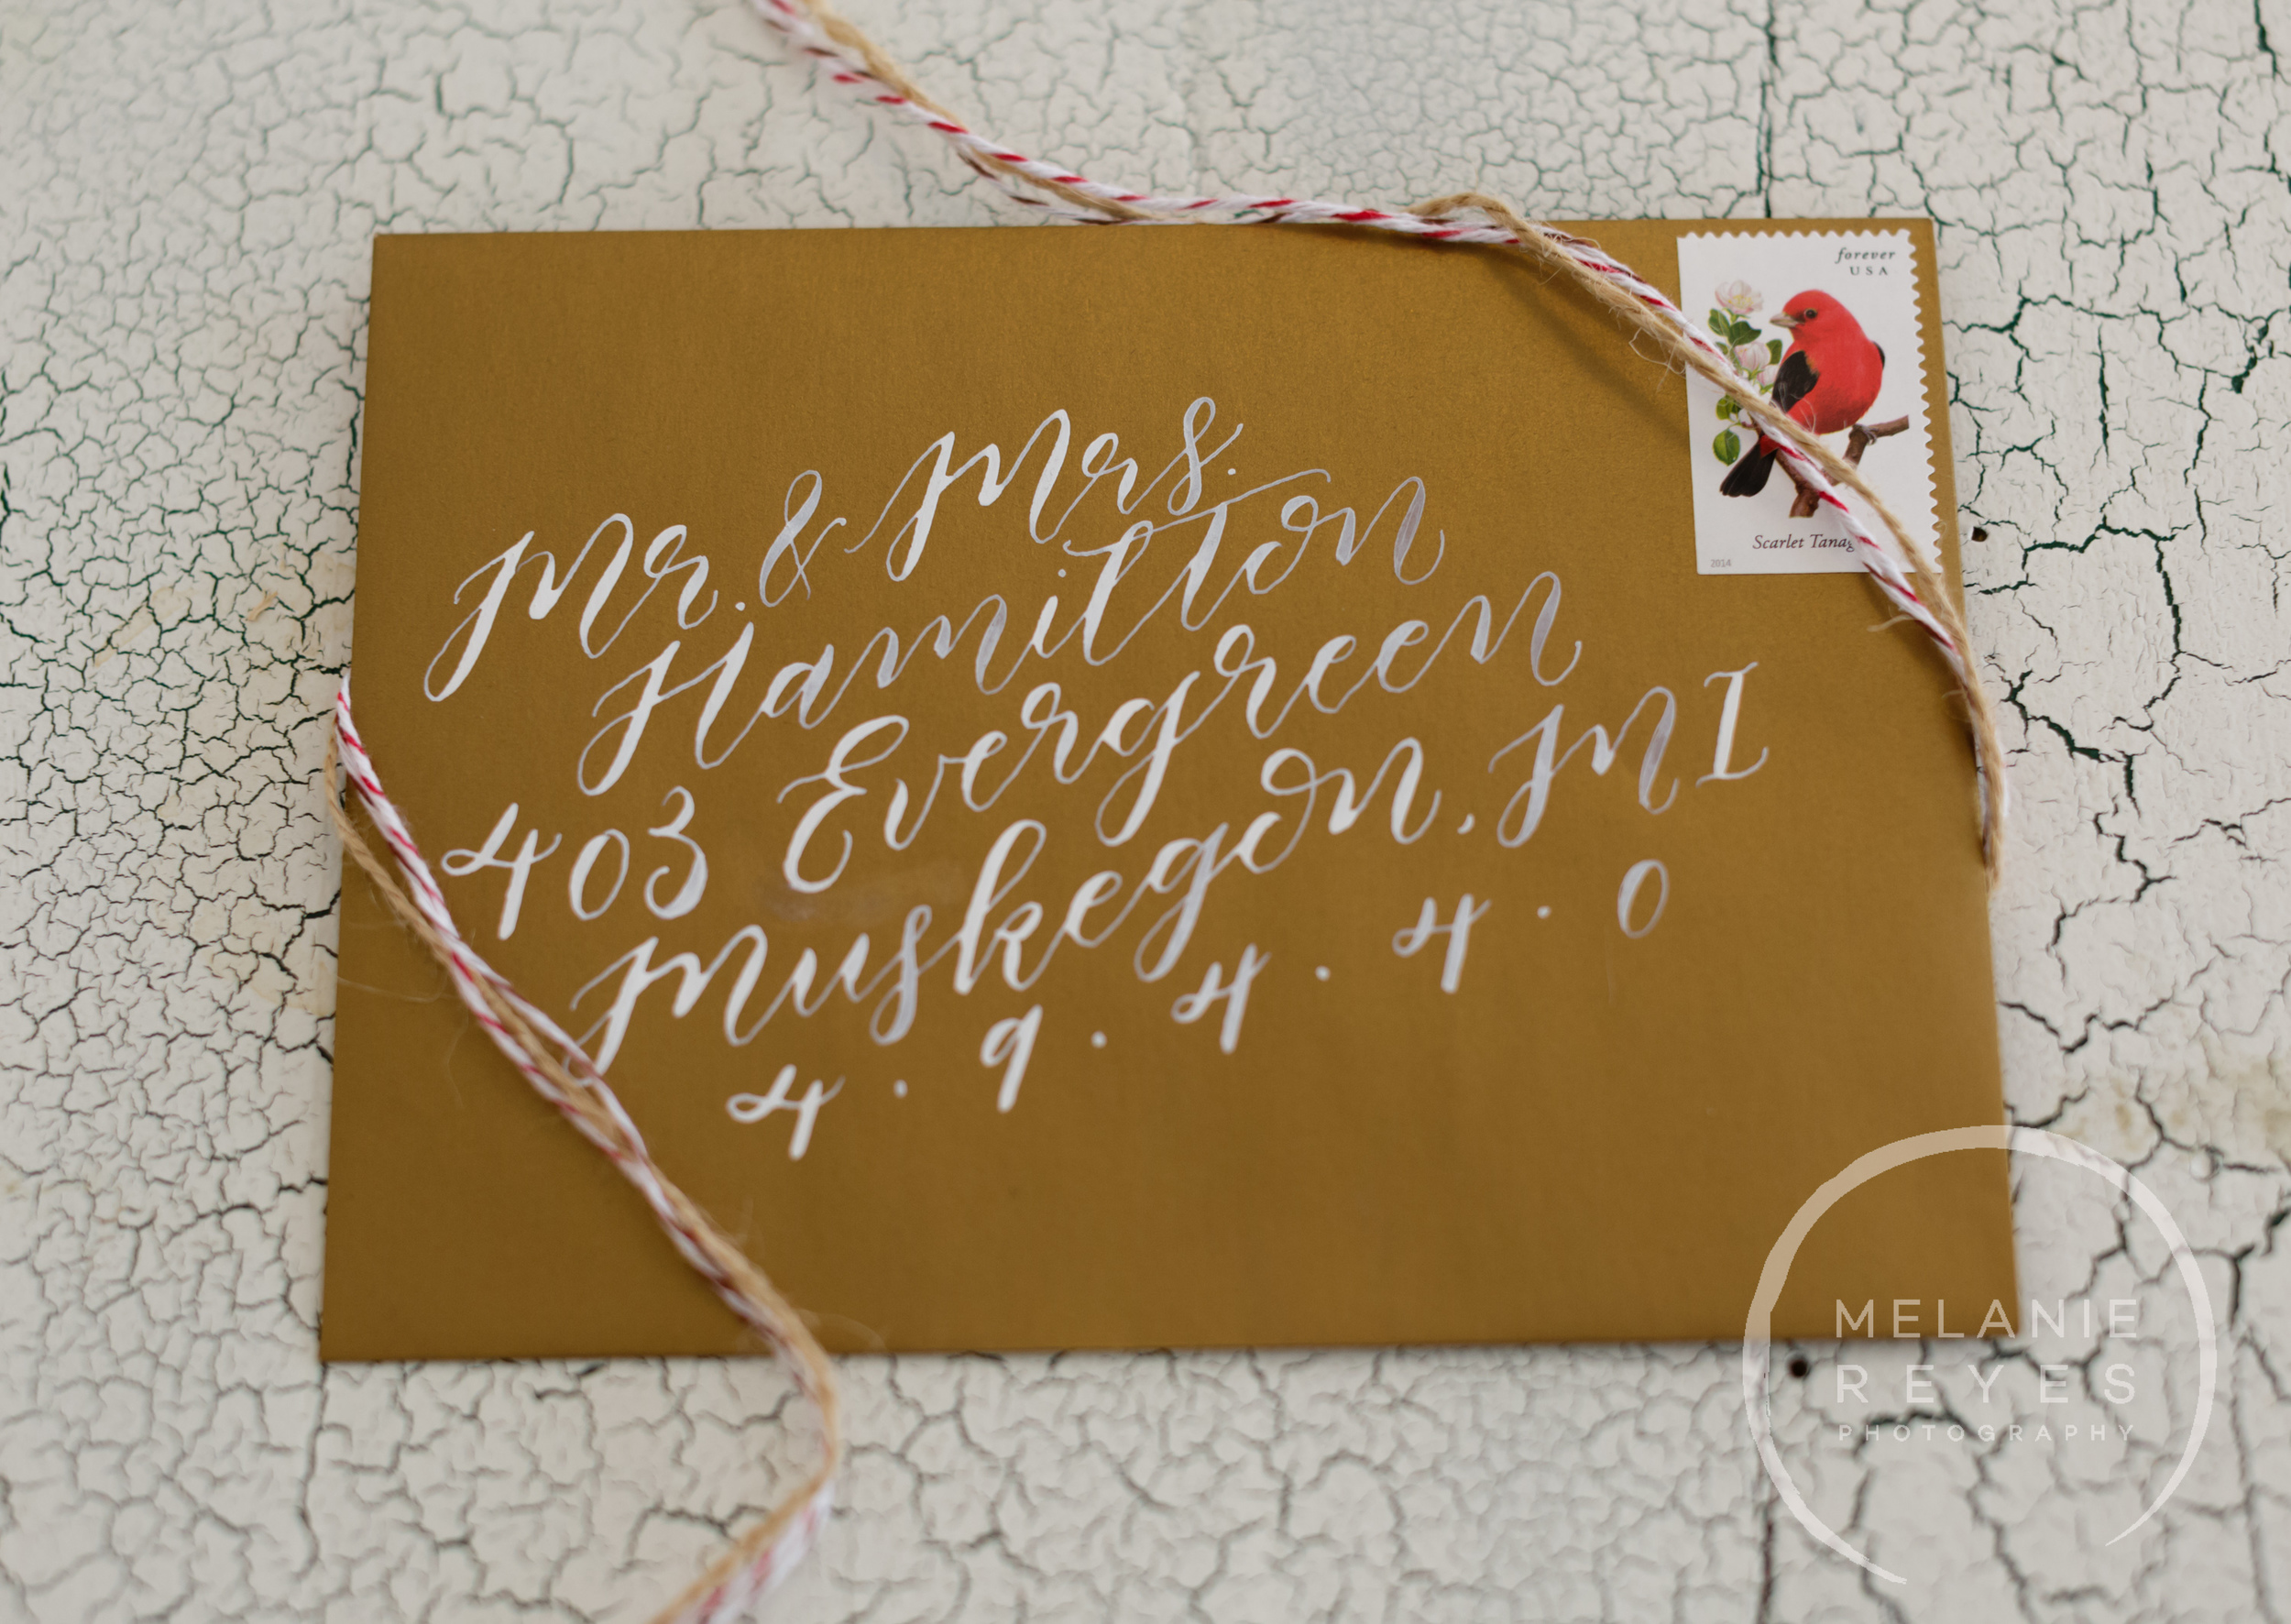 Mr. & Mrs.
Hamilton
403 Evergreen
Muskegon, MI
4 . 9 . 4 . 4 . 0
forever
USA
Scarlet
2014
MELANIE
REYES
PHOTOGRAPHY